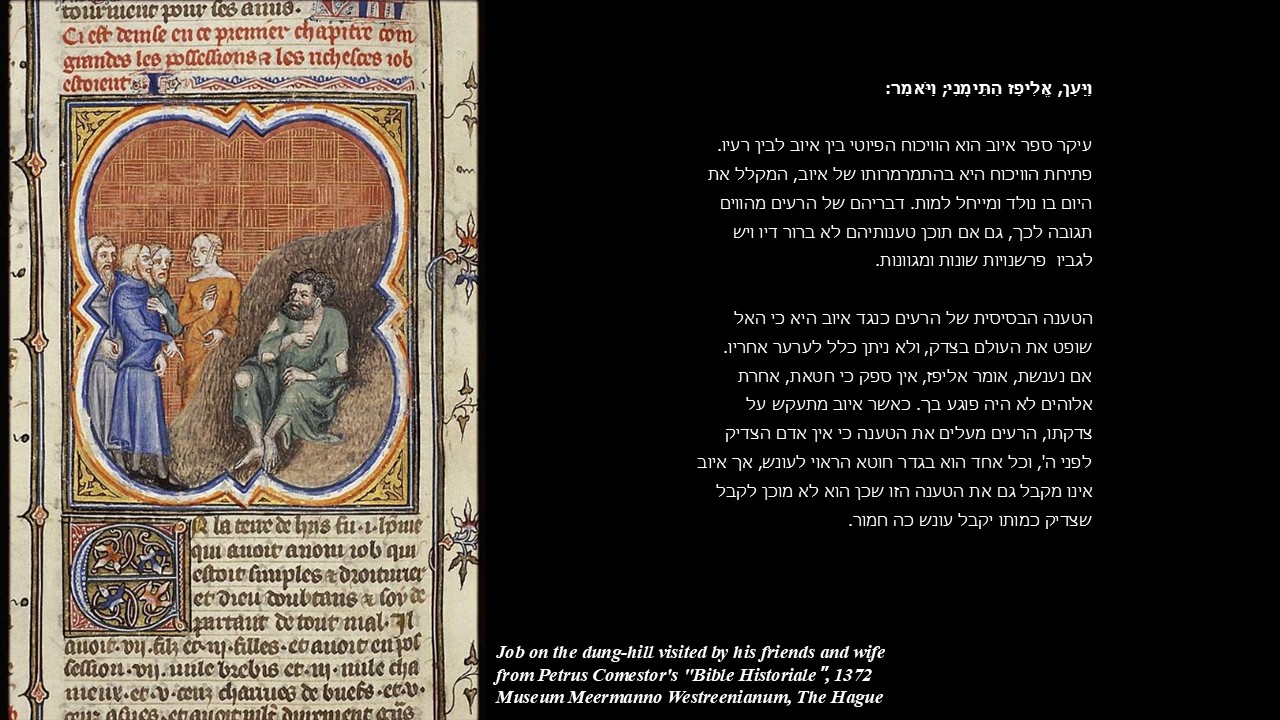 tourment pour ses amis.
Ci est demise en ce premier chapitre com
grandes les possessions & les richesces iob
estoient
וַיַּעַן, אֱלִיפַז הַתֵּימָנִי; וַיֹּאמַר:
עיקר ספר איוב הוא הוויכוח הפיוטי בין איוב לבין רעיו.
פתיחת הוויכוח היא בהתמרמרותו של איוב, המקלל את
היום בו נולד ומייחל למות. דבריהם של הרעים מהווים
תגובה לכך, גם אם תוכן טענותיהם לא ברור דיו ויש
לגביו  פרשנויות שונות ומגוונות.
הטענה הבסיסית של הרעים כנגד איוב היא כי האל
שופט את העולם בצדק, ולא ניתן כלל לערער אחריו.
אם נענשת, אומר אליפז, אין ספק כי חטאת, אחרת
אלוהים לא היה פוגע בך. כאשר איוב מתעקש על
צדקתו, הרעים מעלים את הטענה כי אין אדם הצדיק
לפני ה', וכל אחד הוא בגדר חוטא הראוי לעונש, אך איוב
אינו מקבל גם את הטענה הזו שכן הוא לא מוכן לקבל
שצדיק כמותו יקבל עונש כה חמור.
En la terre de hus fu .i. home
qui auoit a nom iob qui
estoit simples & droiturier
et dieu doubtans & soy de
partant de tout mal. Il
auoit .vii. filz et .iii. filles. et auoit en pos
session .vii. mile brebis et .iii. mile cha
meux. et .v. cenz charrues de buefs. et .v.
Job on the dung-hill visited by his friends and wife
from Petrus Comestor's "Bible Historiale", 1372
Museum Meermanno Westreenianum, The Hague